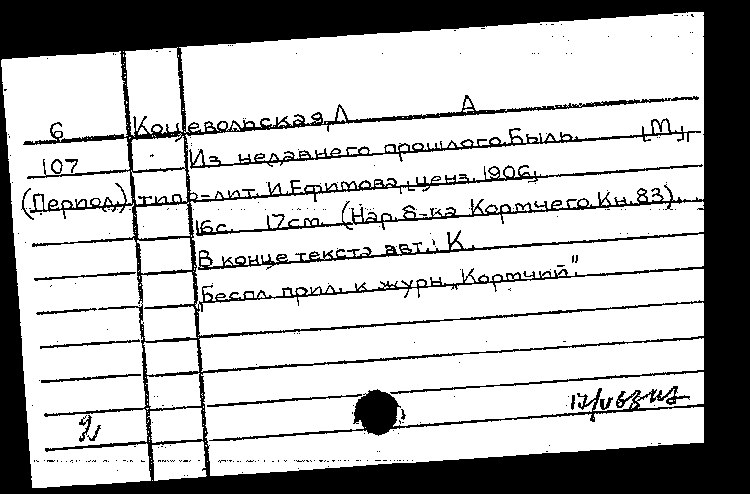 6 Концевольская, Л А
107 Из недавнего прошлого. Быль. [М.],
(Период) типо-лит. И. Ефимова, ценз. 1906.
16с. 17см. (Нар. б-ка Кормчего. Кн. 83).
В конце текста авт.: К.
Беспл. прил. к журн. „Кормчий".